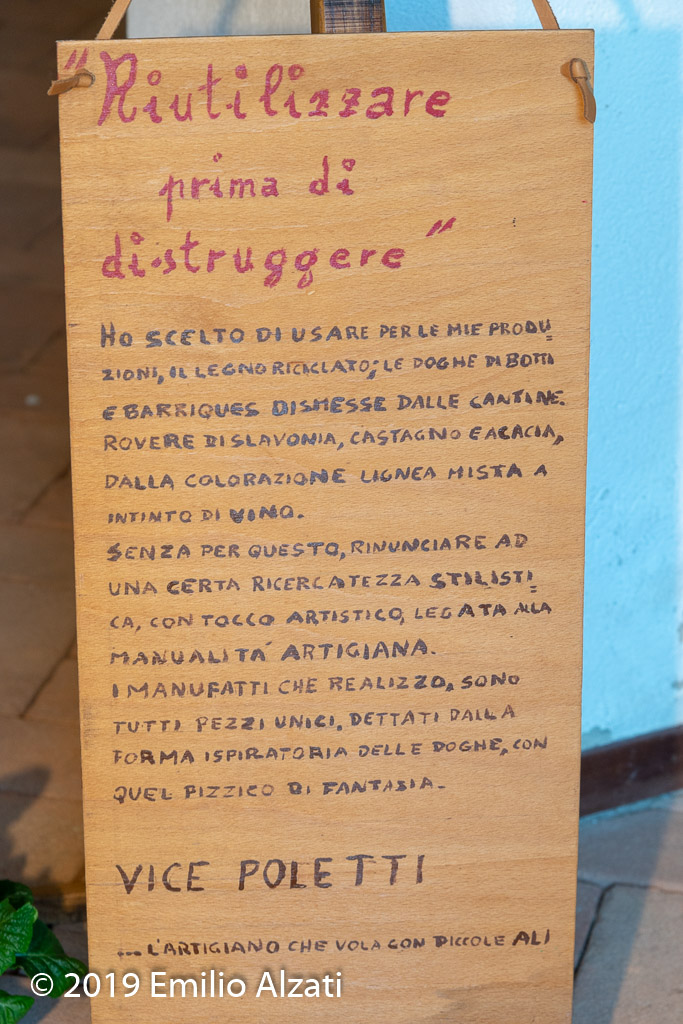 "Riutilizzare
prima di
distruggere"
HO SCELTO DI USARE PER LE MIE PRODU=
ZIONI, IL LEGNO RICICLATO; LE DOGHE DI BOTTI
E BARRIQUES DISMESSE DALLE CANTINE.
ROVERE DI SLAVONIA, CASTAGNO E ACACIA,
DALLA COLORAZIONE LIGNEA MISTA A
INTINTO DI VINO.
SENZA PER QUESTO, RINUNCIARE AD
UNA CERTA RICERCATEZZA STILISTI=
CA, CON TOCCO ARTISTICO, LEGATA ALLA
MANUALITA' ARTIGIANA.
I MANUFATTI CHE REALIZZO, SONO
TUTTI PEZZI UNICI, DETTATI DALLA
FORMA ISPIRATORIA DELLE DOGHE, CON
QUEL PIZZICO DI FANTASIA.
VICE POLETTI
... L'ARTIGIANO CHE VOLA CON PICCOLE ALI
© 2019 Emilio Alzati